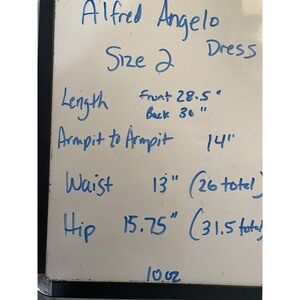 Alfred Angelo
Size 2 Dress
Length Front 28.5"
Back 30"
Armpit to Armpit 14"
Waist 13" (26 total)
Hip 15.75" (31.5 total)
10.oz